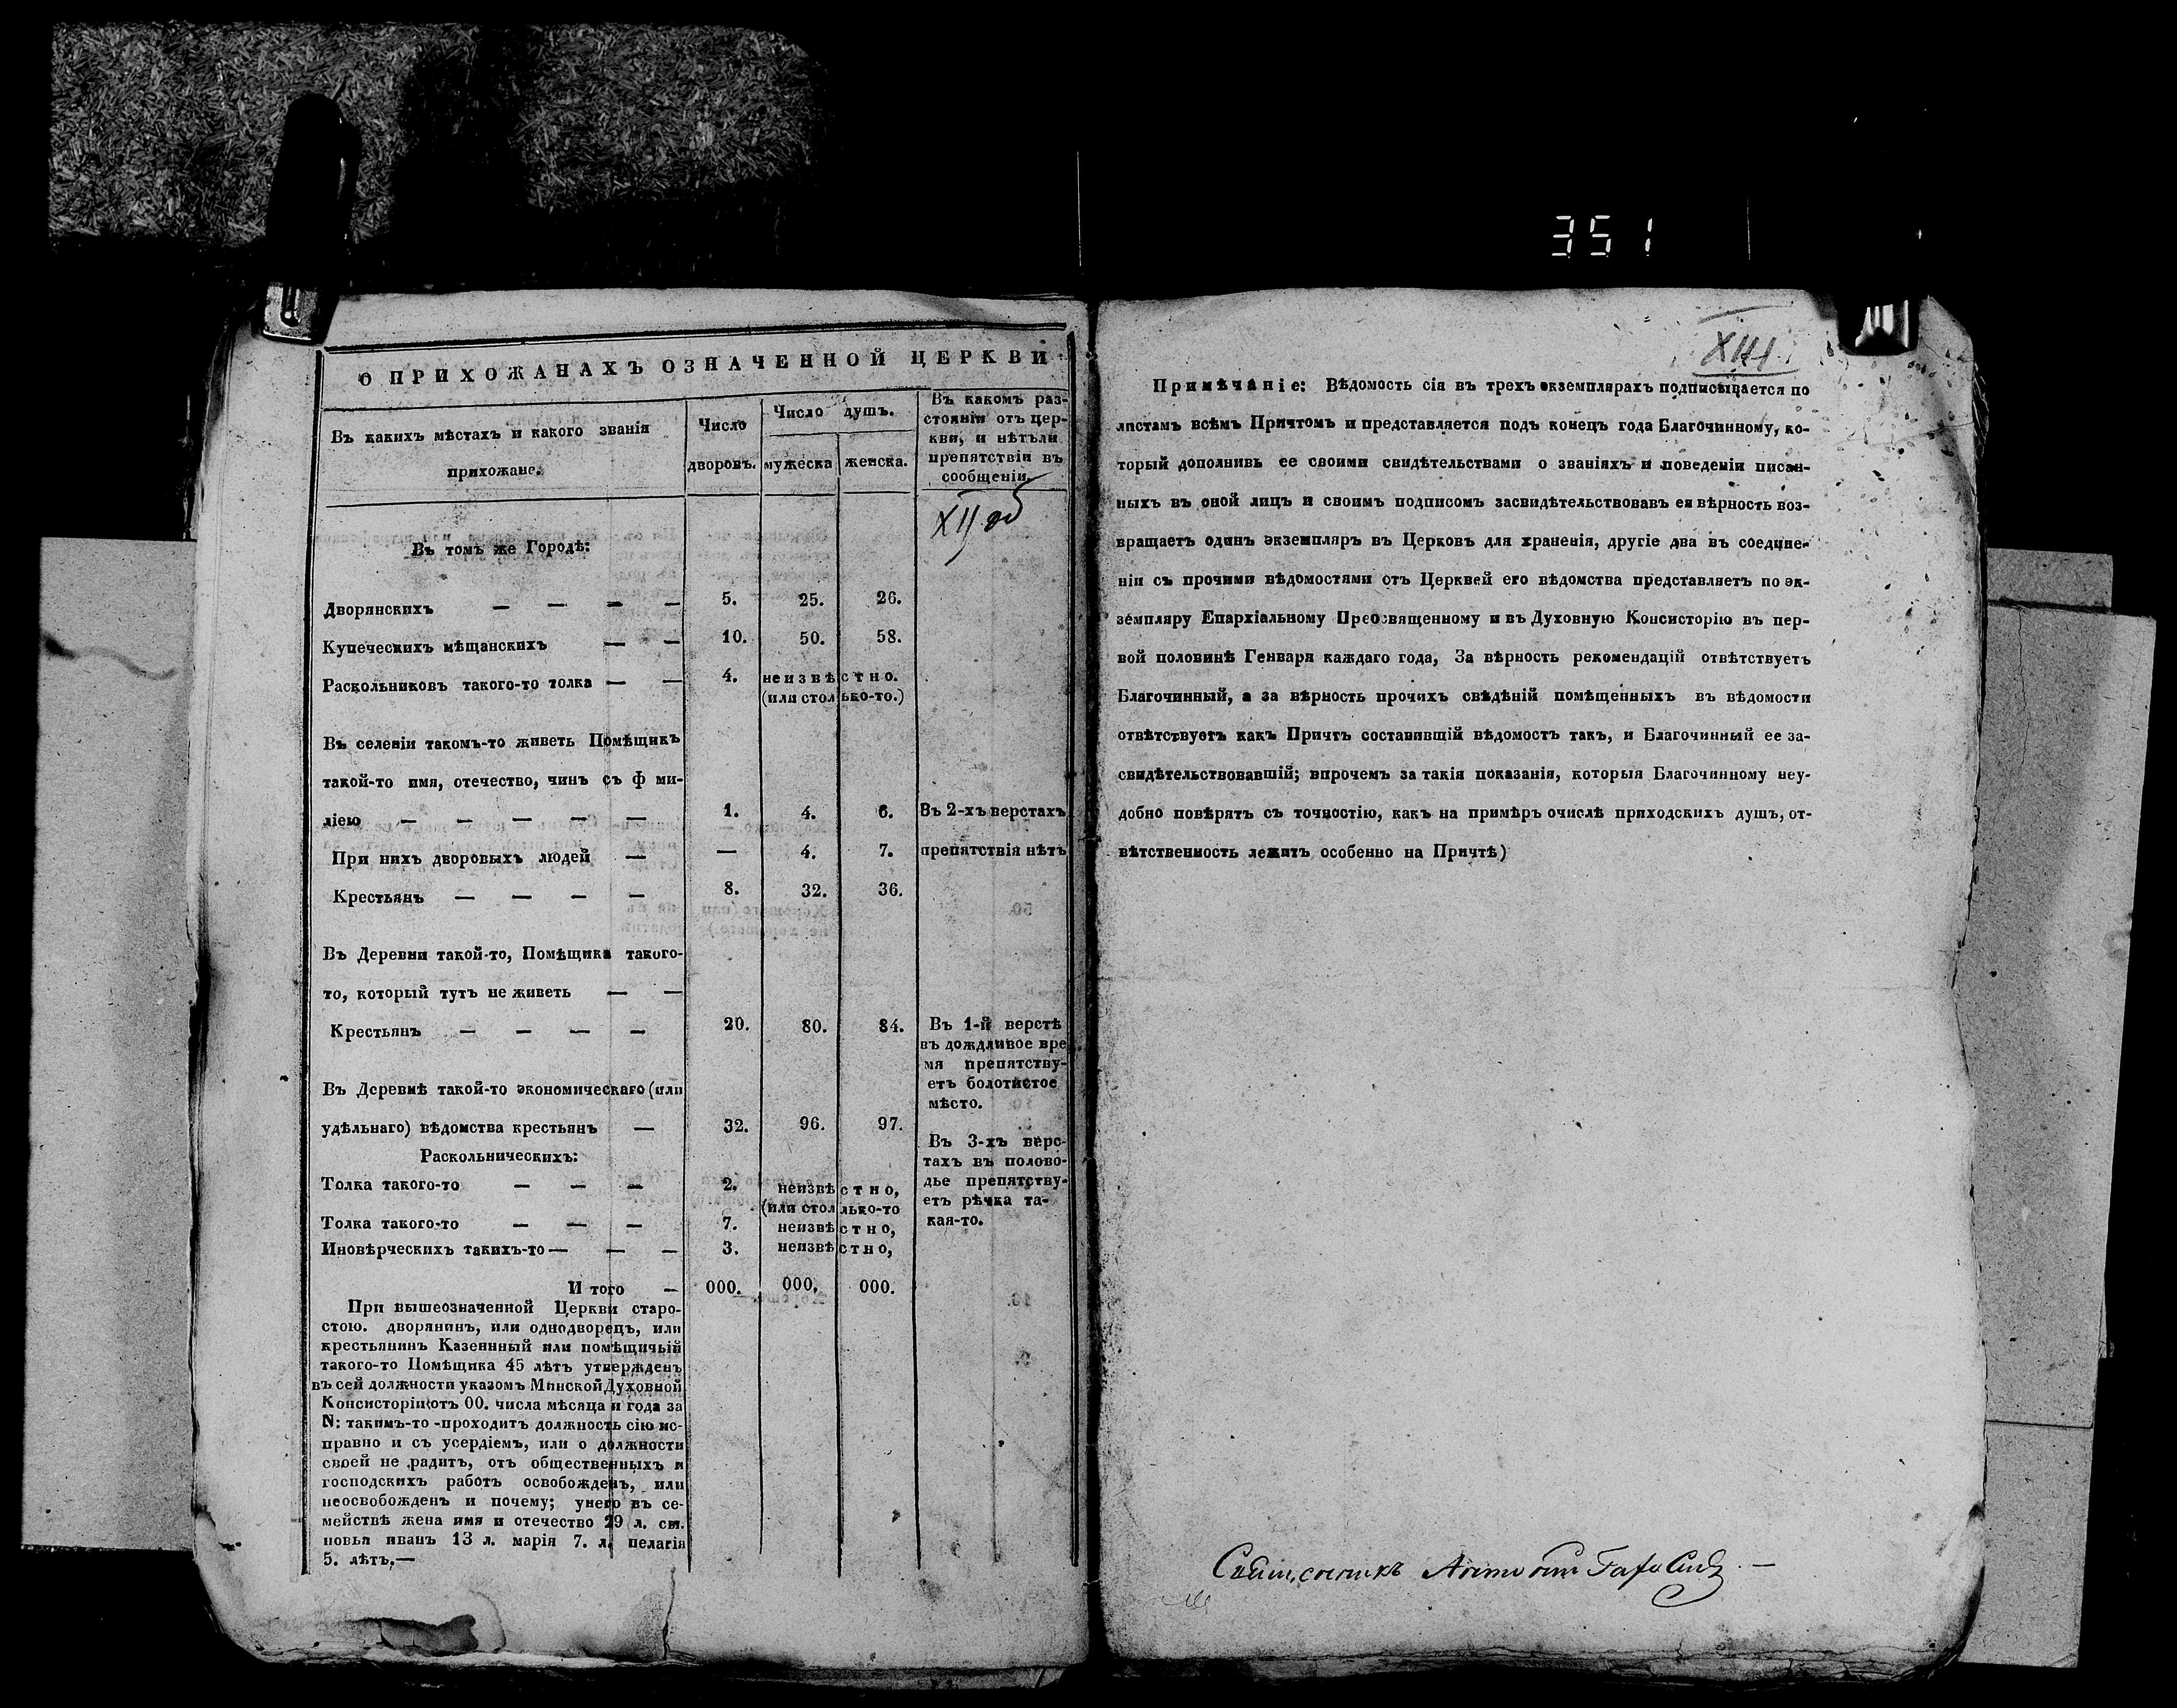 351
О ПРИХОЖАНАХЪ ОЗНАЧЕННОЙ ЦЕРКВИ
Въ какихъ мѣстахъ и какого званія
прихожане.
Число
дворовъ.
Число душъ.
мужеска
женска.
Въ какомъ раз-
стояніи отъ цер-
кви, и нѣтъли
препятствіи въ
сообщеніи.
XII об
Въ томъ же Городѣ:
Дворянскихъ — — — — 5. 25. 26.
Купеческихъ мѣщанскихъ — — 10. 50. 58.
Раскольниковъ такого-то толка — — 4. неизвѣстно.
(или столько-то.)
Въ селеніи такомъ-то живетъ Помѣщикъ
такой-то имя, отечество, чинъ съ ф ми-
ліею — — — — — 1. 4. 6. Въ 2-хъ верстахъ
При нихъ дворовыхъ людей — — 4. 7. препятствія нѣтъ
Крестьянъ — — — — 8. 32. 36.
Въ Деревни такой-то, Помѣщика такого-
то, который тутъ не живетъ — —
Крестьянъ — — — — 20. 80. 84.
Въ 1-й верстѣ
въ дождливое вре
мя препятству-
етъ болотистое
мѣсто.
Въ Деревнѣ такой-то экономическаго (или
удѣльнаго) вѣдомства крестьянъ — 32. 96. 97.
Въ 3-хъ верс-
тахъ въ полово-
дье препятству-
етъ рѣчка та-
кая-то.
Раскольническихъ:
Толка такого-то — — — 2. неизвѣстно,
(или столлько-то
Толка такого-то — — — 7. неизвѣстно,
Иновѣрческихъ такихъ-то — — — 3. неизвѣстно,
И того — 000. 000. 000.
При вышеозначенной Церкви старо-
стою. дворянинъ, или однодворецъ, или
крестьянинъ Казеннный или помѣщичьій
такого-то Помѣщика 45 лѣтъ утвержденъ
въ сей должности указомъ Минской Духовной
Консисторіи отъ 00. числа мѣсяца и года за
N: такимъ-то -проходитъ должность сію ис-
правно и съ усердіемъ, или о должности
своей не радитъ, отъ общественныхъ и
господскихъ работъ освобожденъ, или
неосвобожденъ и почему; унего въ се-
мействѣ жена имя и отечество 29 л. сы.
новья иванъ 13 л. марія 7. л. пелагія
5. лѣтъ,—
XIII
Примѣчаніе: Вѣдомость сія въ трехъ экземплярахъ подписывается по
листамъ всѣмъ Причтомъ и представляется подъ конецъ года Благочинному, ко-
торый дополнивь ее своими свидѣтельствами о званіяхъ и поведеніи писан-
ныхъ въ оной лицъ и своимъ подписомъ засвидѣтельствовавъ ея вѣрность воз-
вращаетъ одинъ экземпляръ въ Церковъ для храненія, другіе два въ соедине-
ніи съ прочими вѣдомостями отъ Церквей его вѣдомства представляетъ по эк-
земпляру Епархіальному Преосвященному и въ Духовную Консисторію въ пер-
вой половинѣ Генваря каждаго года, За вѣрность рекомендацій отвѣтствуетъ
Благочинный, а за вѣрность прочихъ свѣдѣній помѣщенныхъ въ вѣдомости
отвѣтствуетъ какъ Причтъ составившій вѣдомостъ такъ, и Благочинный ее за-
свидѣтельствовавшій; впрочемъ за такія показанія, которыя Благочинному неу-
добно повѣрятъ съ точностію, какъ на примѣръ очислѣ приходскихъ душъ, от-
вѣтственность лежитъ особенно на Причтѣ)
Священникъ